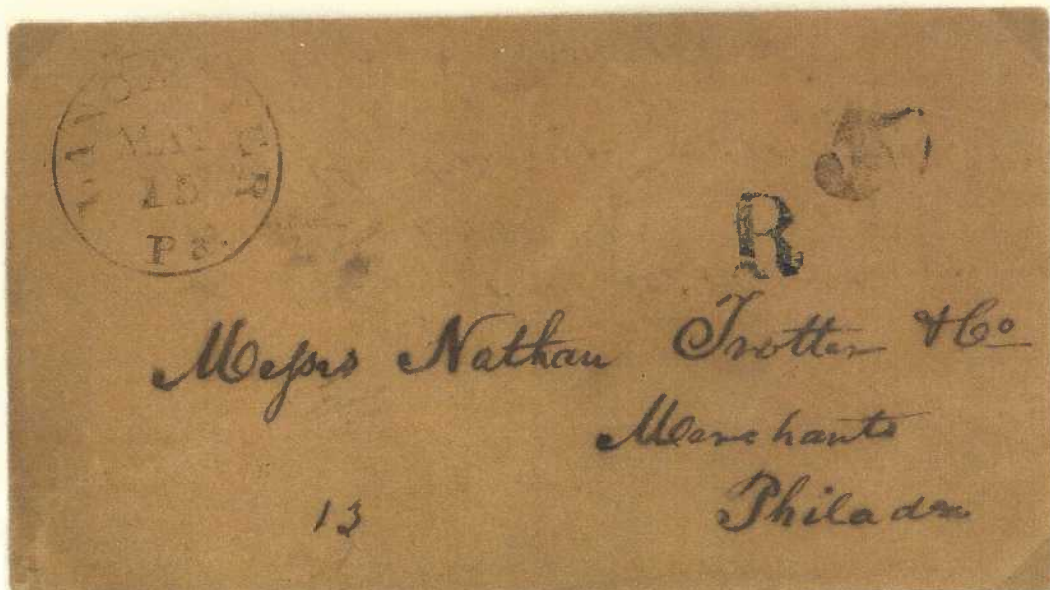 MAY
15
Pa.
5
R
Messrs Nathan Trotter & Co
Merchants
Philada
13